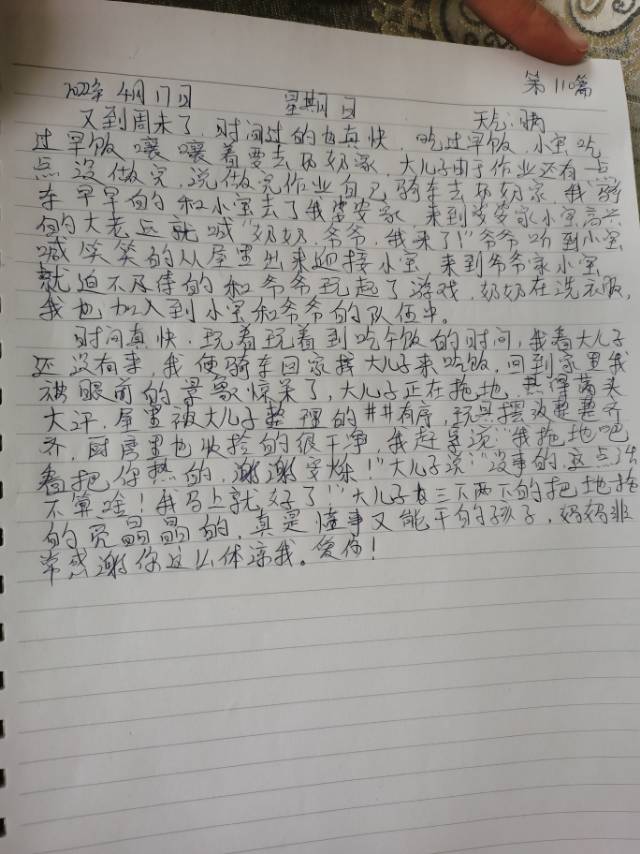 第110篇
2022年4月17日 星期日 天气:晴
又到周末了,时间过的也真快,吃过早饭,小宝吃
过早饭嚷嚷着要去奶奶家,大儿子由于作业还有一
点没做完,说做完作业自己骑车去奶奶家,我骑
车早早的和小宝去了我婆婆家,来到婆婆家小宝高兴
的大老远就喊"奶奶,爷爷,我来了!"爷爷听到小宝
喊笑笑的从屋里出来迎接小宝,来到爷爷家小宝
就迫不及待的和爷爷玩起了游戏,奶奶在洗衣服,
我也加入到小宝和爷爷的队伍中。
时间真快,玩着玩着到吃午饭的时间,我看大儿子
还没有来,我便骑车回家找大儿子来吃饭,回到家里我
被眼前的景象惊呆了,大儿子正在拖地,热得满头
大汗,屋里被大儿子整理的井井有序,玩具摆放整整齐
齐,厨房里也收拾的很干净,我赶紧说"我拖地吧
看把你热的,谢谢宝烁!"大儿子说"没事的,这点活
不算啥!我马上就好了!"大儿子三下两下的把地拖
的亮晶晶的,真是懂事又能干的孩子,妈妈非
常感谢你这么体谅我。爱你!